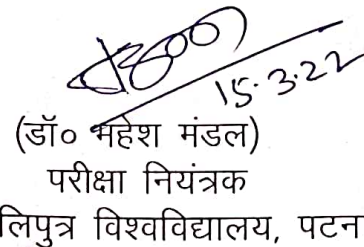 15.3.22
(डॉ० महेश मंडल)
परीक्षा नियंत्रक
लिपुत्र विश्वविद्यालय, पटन